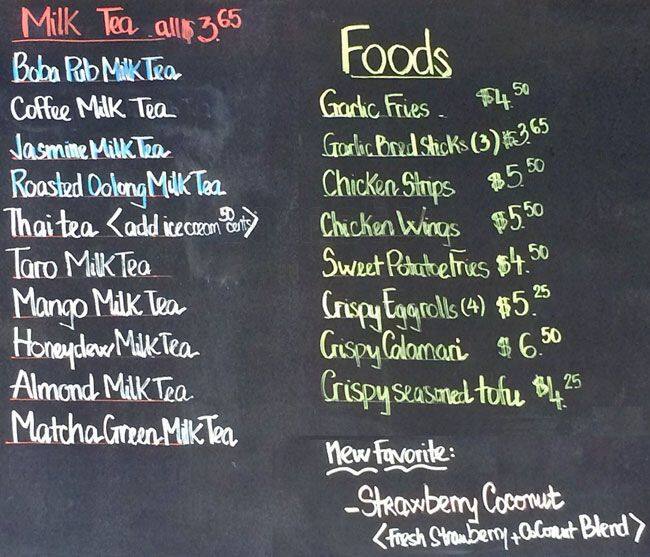 Milk Tea all $3.65
Boba Pub Milk Tea
Coffee Milk Tea
Jasmine Milk Tea
Roasted Oolong Milk Tea
Thai tea <add ice cream 50 cents>
Taro Milk Tea
Mango Milk Tea
Honeydew Milk Tea
Almond Milk Tea
Matcha Green Milk Tea
Foods
Garlic Fries $4.50
Garlic Bred Sticks (3) $3.65
Chicken Strips $5.50
Chicken Wings $5.50
Sweet Potatoe Fries $4.50
Crispy Eggrolls (4) $5.25
Crispy Calamari $6.50
Crispy seasoned tofu $4.25
New Favorite:
-Strawberry Coconut
<Fresh Strawberry + Coconut Blend>